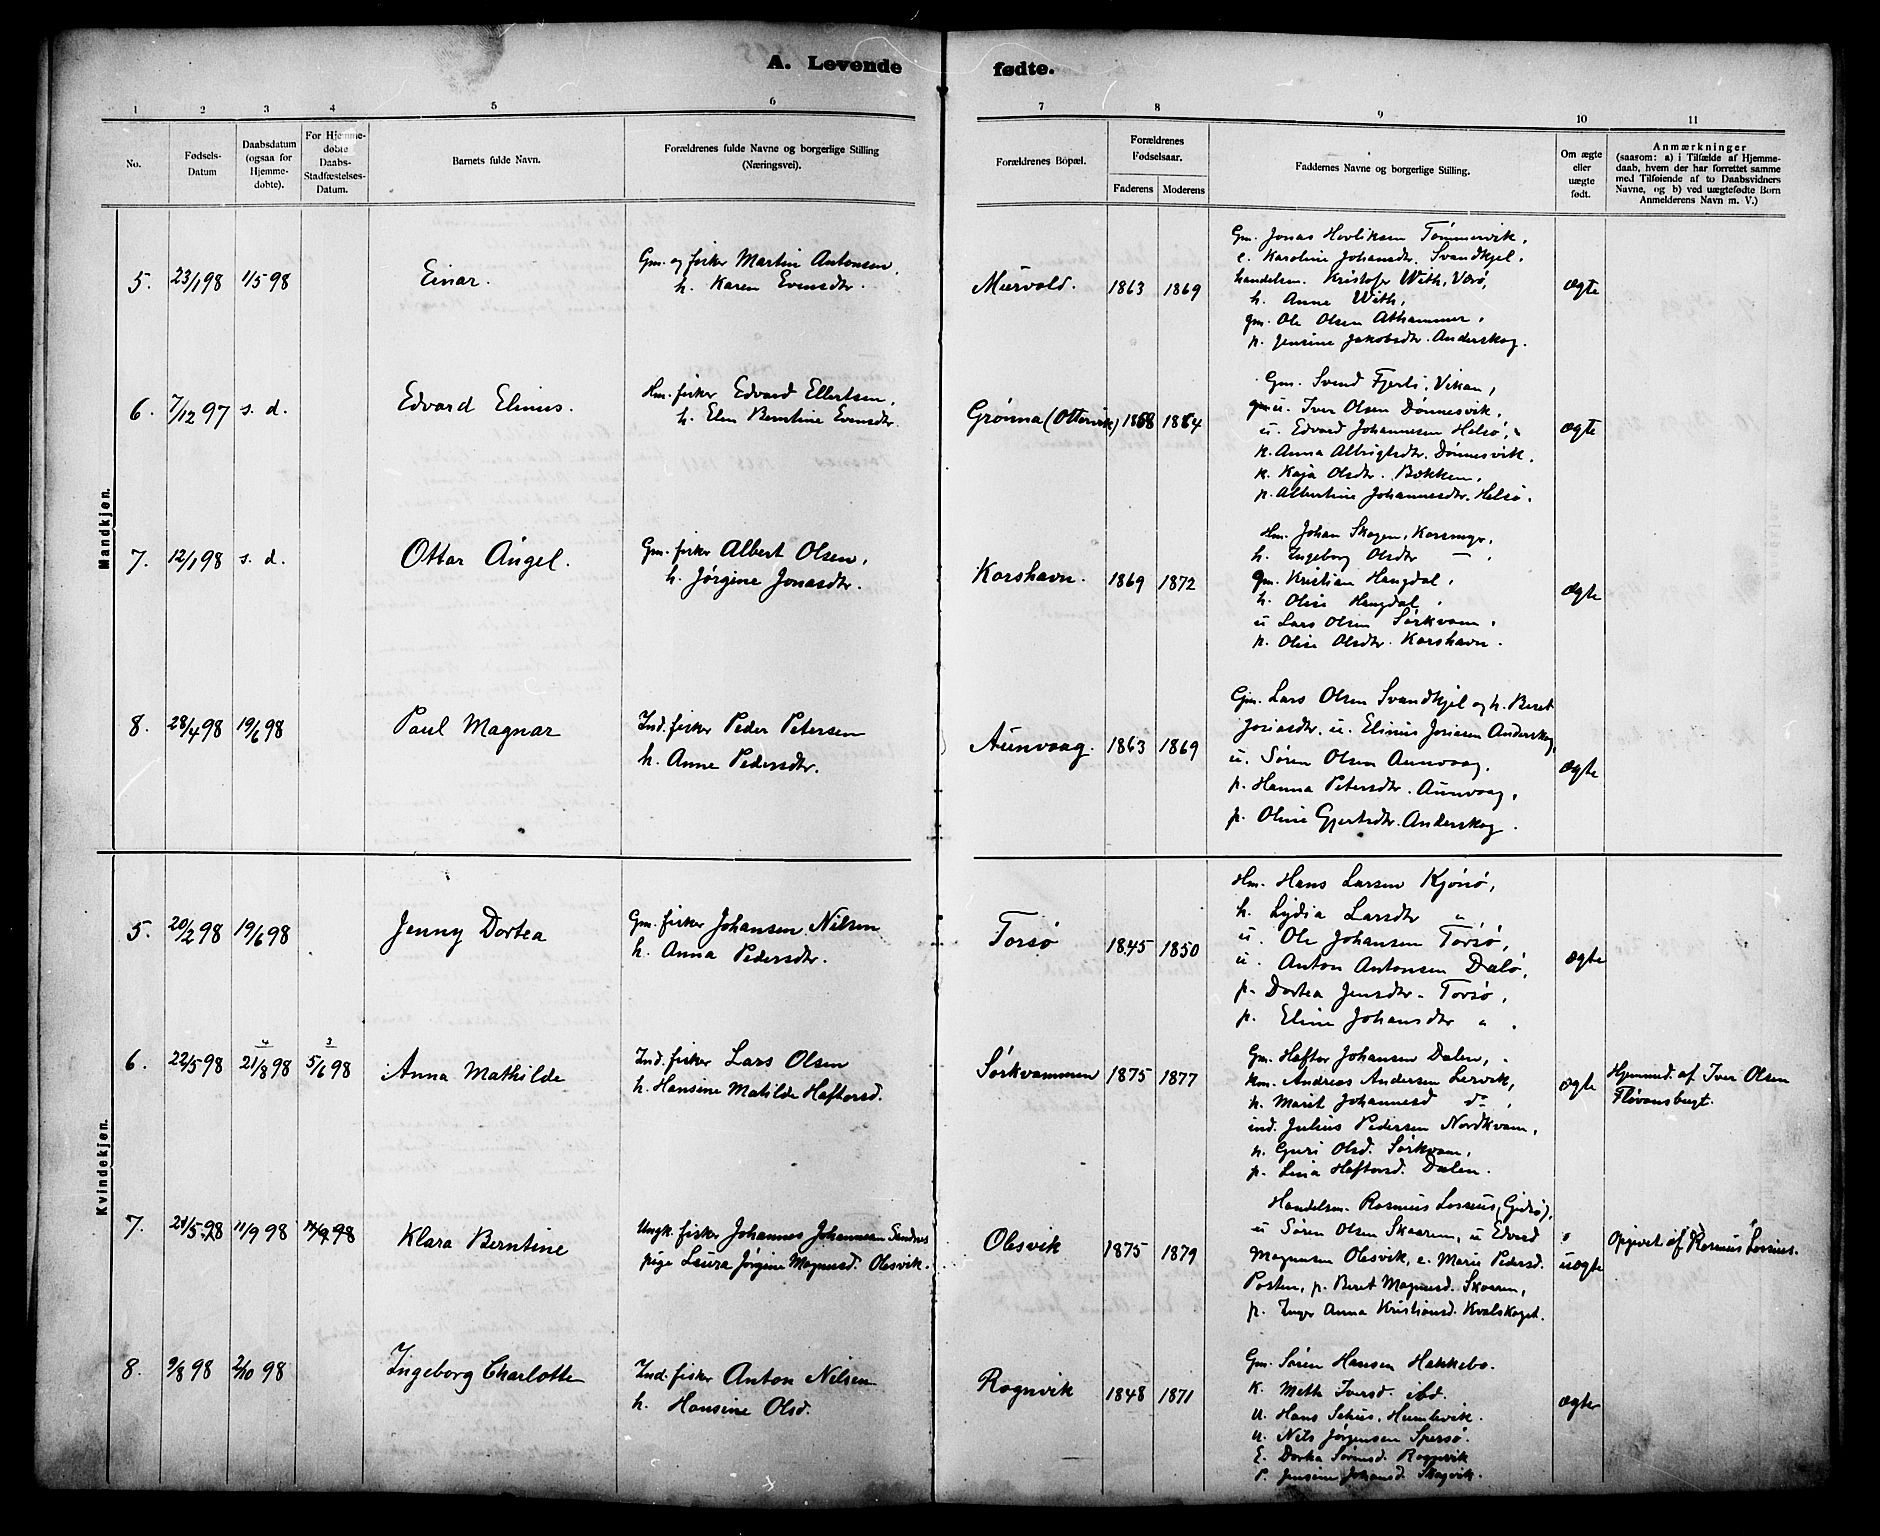 A. Levende fødte.
1 2 3 4 5 6 7 8 9 10 11
No.
Fødsels-
Datum
Daabsdatum
(ogsaa for
Hjemme-
døbte).
For Hjemme-
døbte
Daabs-
Stadfæstelses-
Datum.
Barnets fulde Navn.
Forældrenes fulde Navne og borgerlige Stilling
(Næringsvei).
Forældrenes Bopæl.
Forældrenes
Fødselsaar.
Faderens Moderens
Faddernes Navne og borgerlige Stilling.
Om ægte
eller
uægte
født.
Anmærkninger
(saasom: a) i Tilfælde af Hjemme-
daab, hvem der har forrettet samme
med Tilføiende af to Daabsvidners
Navne, og b) ved uægtefødte Børn
Anmelderens Navn m. V.)
Mandkjøn.
5. 23/1 98 1/5 98 Einar.
Gm. og fisker Martin Antonsen,
h. Karen Evensdtr.
Murvold. 1863 1869
Gm. Jonas Hovliksen Tømmervik,
e. Karoline Johansdtr. Svandkjel.
handelsm. Kristofer With, Værø,
h. Anne With,
gm. Ole Olsen Athammer,
p. Jensine Jakobsdtr. Anderskog.
ægte
6. 7/12 97 s. d. Edvard Elinus.
Hm. fisker Edvard Ellertsen,
h. Elen Berntine Evensdtr.
Grønna (Ottervik) 1868 1864
Gm. Svend Fjerli, Vikan,
u. Iver Olsen Dønnesvik,
u. Edvard Johannesen Helsø,
k. Anna Albrigtsdtr. Dønnesvik.
k. Kaja Olsdtr. Bekken,
p. Albertine Johannesdtr. Helsø.
ægte
7. 12/1 98 s. d. Ottar Angel.
Gm. fisker Albert Olsen,
h. Jørgine Jonasdtr.
Korshavn. 1869 1872
Hm. Johan Skogen, Korsmyr,
h. Ingeborg Olsdtr — ,
gm. Kristian Hangdal,
h. Olise Hangdal,
u Lars Olsen Sørkvam,
p. Olise Olsdtr. Korshavn.
ægte
8. 28/4 98 19/6 98 Paul Magnar
Ind. fisker Peder Petersen
h. Anne Pedersdtr.
Aunvaag. 1863 1869
Gm. Lars Olsen Svandkjel og h. Beret
Josiasdtr. u. Elinus Josiasen Anderskog,
u. Søren Olsen Aunvaag.
p. Hanna Petersdtr. Aunvaag,
p. Oline Gjertsdtr. Anderskog.
ægte
Kvindekjøn.
5. 20/2 98 19/6 98 Jenny Dortea
Gm. fisker Johansen Nilsen
h. Anna Pedersdtr.
Torsø 1845 1850
Hm. Hans Larsen Kjønsø,
h. Lydia Larsdtr "
u. Ole Johansen Torsø,
u. Anton Antonsen Dalø,
p. Dortea Jensdtr. Torsø,
p. Eline Johansdtr " .
ægte
6. 22/5 98 4 21/8 98 3 5/6 98 Anna Mathilde
Ind. fisker Lars Olsen
h. Hansine Matilde Haftorsd.
Sørkvammen 1875 1877
Gm. Haftor Johansen Dalen,
km. Andreas Andersen Lervik,
h. Marit Johannesd do,
ind. Julius Pedersen Nordkvam,
h. Guri Olsd. Sørkvam,
p. Lina Haftorsd. Dalen.
ægte
Hjemmed. af Iver Olsen
Fløvansbugt.
7. 21/5 98 11/9 98 11/9 98 Klara Berntine
Ungk. fisker Johannes Johannesen Sandnes
pige Laura Jørgine Magnusd. Olesvik.
Olesvik 1875 1879
Handelsm. Rasmus Lossius, (Gjedø),
u Søren Olsen Skaaren, u Edvard
Magnusen Olesvik, e. Marie Pedersd.
Posten, p. Beret Magnusd. Skaaren,
p. Inger Anna Kristiansd. Kvalskaget.
uægte
Opgivet af Rasmus Lossius.
8. 9/8 98 2/10 98 Ingeborg Charlotte
Ind. fisker Anton Nilsen
h. Hansine Olsd.
Rognvik 1848 1871
Gm. Søren Hansen Hakkebo.
K. Meth Iversd. ibd.
U. Hans Schus. Humlevik.
U. Nils Jørgensen Spersø.
E. Dorka Sørensd. Rognvik
P. Jensine Johansd. Skogvik.
ægte